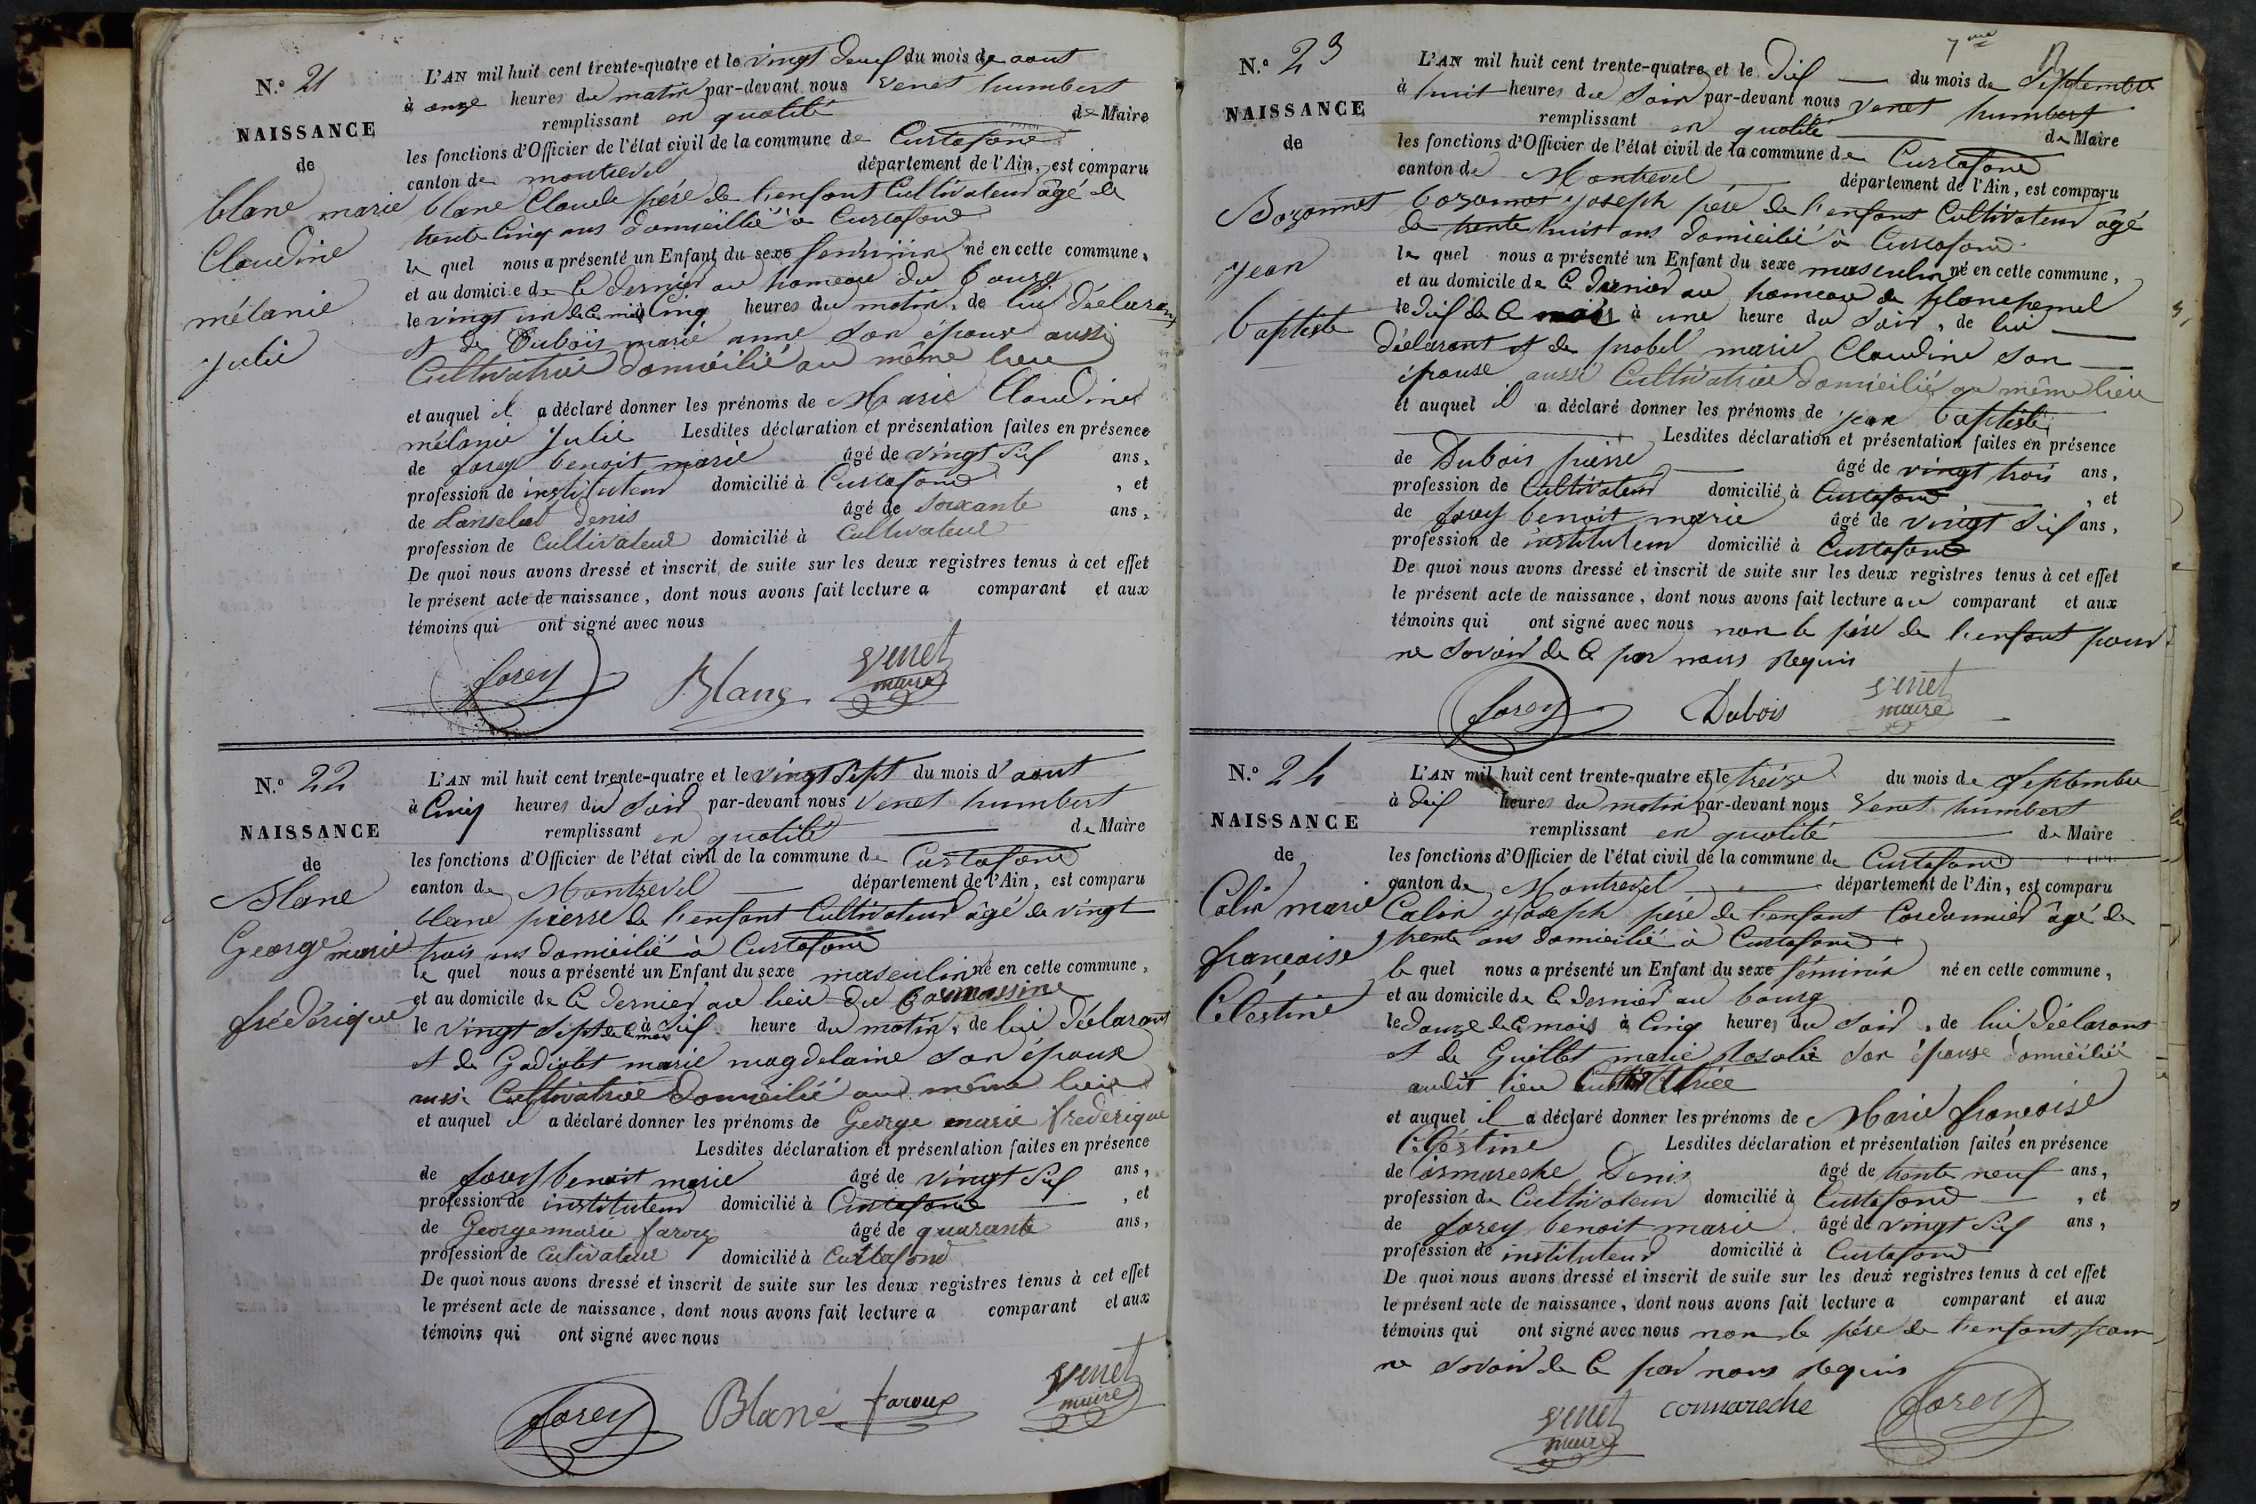 N.º 21
NAISSANCE
de
blanc marie
Claudine
mélanie
Julie
L'AN mil huit cent trente-quatre et le vingt deux du mois de aout
à onze heures du matin par-devant nous Venet humbert
remplissant en qualité de Maire
les fonctions d'Officier de l'état civil de la commune de Curtafond
canton de montrevel département de l'Ain, est comparu
blanc Claude père de l'enfant Cultivateur âgé de
trente Cinq ans domicillié à Curtafond
le quel nous a présenté un Enfant du sexe feminin né en cette commune,
et au domicile de Ce dernier au hameau du bourg
le vingt un de Ce mois à Cinq heures du matin, de lui déclarant
et de Dubois marie anne son épouse aussi
Cultivatrice domicilié au même lieu
et auquel il a déclaré donner les prénoms de Marie Claudine
mélanie Julie Lesdites déclaration et présentation faites en présence
de forey benoit marie âgé de vingt Six ans,
profession de instituteur domicilié à Curtafond, et
de Lanselut Denis âgé de soixante ans,
profession de Cultivateur domicilié à Cultivateur
De quoi nous avons dressé et inscrit de suite sur les deux registres tenus à cet effet
le présent acte de naissance, dont nous avons fait lecture a comparant et aux
témoins qui ont signé avec nous
forey Blanc Venet
maire
N.º 22
NAISSANCE
de
Blanc
George marie
frédérique
L'AN mil huit cent trente-quatre et le vingt Sept du mois d'aout
à Cinq heures du Soir par-devant nous Venet humbert
remplissant en qualité de Maire
les fonctions d'Officier de l'état civil de la commune de Curtafond
canton de Montrevel département de l'Ain, est comparu
blanc pierre de l'enfant Cultivateur âgé de vingt
trois ans domicilié à Curtafond
le quel nous a présenté un Enfant du sexe masculin né en cette commune,
et au domicile de Ce dernier au lieu du
le vingt Sept de Ce mois à Six heure du matin, de lui déclarant
et de Gadiolet marie magdelaine son épouse
aussi Cultivatrice domicilié au même lieu
et auquel il a déclaré donner les prénoms de George marie frederique
Lesdites déclaration et présentation faites en présence
de forey benoit marie âgé de vingt Six ans,
profession de instituteur domicilié à Curtafond, et
de George marie faroux âgé de quarante ans,
profession de Cultivateur domicilié à Curtafond
De quoi nous avons dressé et inscrit de suite sur les deux registres tenus à cet effet
le présent acte de naissance, dont nous avons fait lecture a comparant et aux
témoins qui ont signé avec nous
forey Blanc faroux Venet
maire
7me
N.º 23
NAISSANCE
de
Bozonnet
Jean
baptiste
L'AN mil huit cent trente-quatre et le Dix du mois de Septembre
à huit heures du Soir par-devant nous Venet humbert
remplissant en qualité de Maire
les fonctions d'Officier de l'état civil de la commune de Curtafond
canton de Montrevel département de l'Ain, est comparu
bozonnet Joseph père de l'enfant Cultivateur âgé
de trente huit ans domicilié à Curtafond
le quel nous a présenté un Enfant du sexe masculin né en cette commune,
et au domicile de Ce dernier au hameau de
le dix de Ce mois à une heure du Soir, de lui
déclarant et de probel marie Claudine son
épouse aussi Cultivatrice domicilié au même lieu
et auquel il a déclaré donner les prénoms de jean baptiste
Lesdites déclaration et présentation faites en présence
de Dubois pierre âgé de vingt trois ans,
profession de Cultivateur domicilié à Curtafond, et
de forey benoit marie âgé de vingt Six ans,
profession de instituteur domicilié à Curtafond
De quoi nous avons dressé et inscrit de suite sur les deux registres tenus à cet effet
le présent acte de naissance, dont nous avons fait lecture au comparant et aux
témoins qui ont signé avec nous non le père de l'enfant pour
ne savoir de Ce par nous requis
forey Dubois Venet
maire
N.º 24
NAISSANCE
de
Colin marie
francoise
Célestine
L'AN mil huit cent trente-quatre et le treize du mois de Septembre
à dix heures du matin par-devant nous Venet humbert
remplissant en qualité de Maire
les fonctions d'Officier de l'état civil de la commune de Curtafond
canton de Montrevel département de l'Ain, est comparu
Colin Joseph père de l'enfant Cordonnier âgé de
trente ans domicilié à Curtafond
le quel nous a présenté un Enfant du sexe féminin né en cette commune,
et au domicile de Ce dernier au bourg
le douze de Ce mois à Cinq heures du Soir, de lui déclarant
et de Guillet marie Rosalie son épouse domicilié
audit lieu Cultivatrice
et auquel il a déclaré donner les prénoms de Marie francoise
Célestine Lesdites déclaration et présentation faites en présence
de Cormareche Denis âgé de trente neuf ans,
profession de Cultivateur domicilié à Curtafond, et
de forey benoit marie âgé de vingt Six ans,
profession de instituteur domicilié à Curtafond
De quoi nous avons dressé et inscrit de suite sur les deux registres tenus à cet effet
le présent acte de naissance, dont nous avons fait lecture a comparant et aux
témoins qui ont signé avec nous non le père de l'enfant pour
ne savoir de Ce par nous requis
Venet cormareche forey
maire